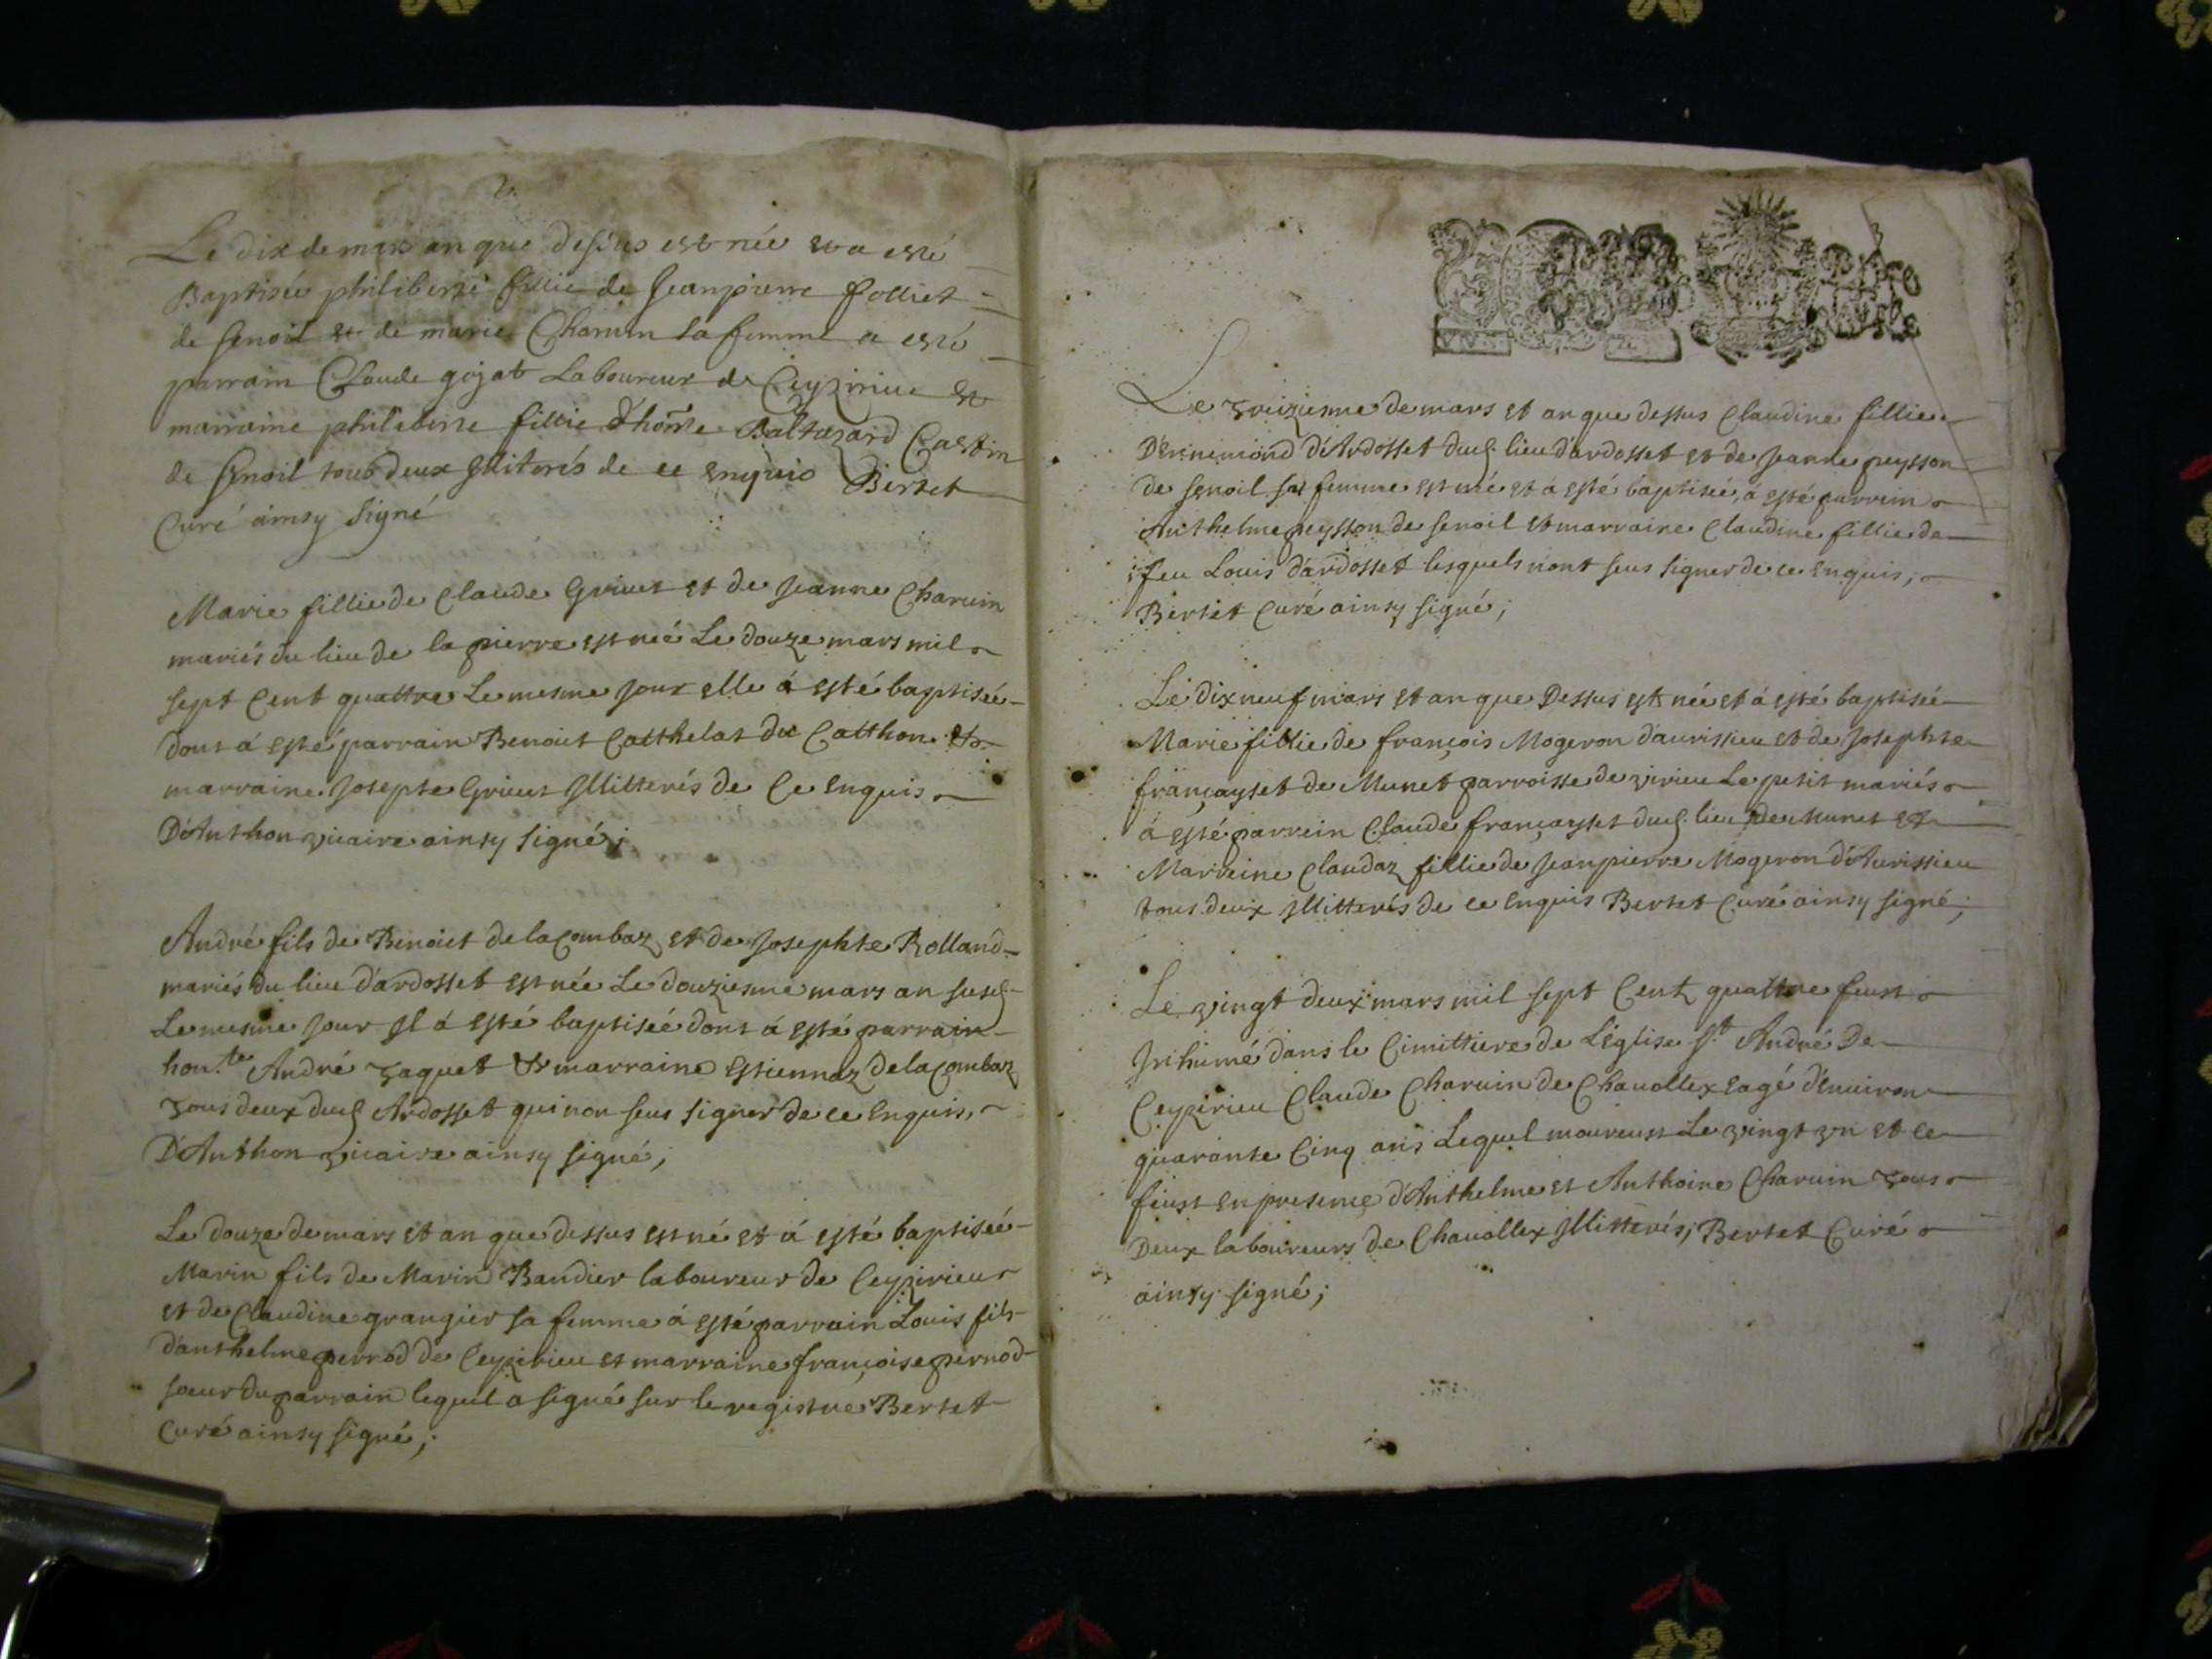 2.
Le dix de mars an que dessus est née et a esté
Baptisée philiberte fillie de Jeanpierre folliet
de senoil et de marie Charuin sa femme a esté
parrain Claude gojat Laboureur de Ceyzirieu et
marraine philiberte fillie d'hon.e Baltazard Castin
de senoil tous deux illiterés de ce enquis Bertet
Curé ainsy signé
Marie fillie de Claude Griuet et de Jeanne Charuin
mariés du lieu de la pierre est née Le douze mars mil
sept Cent quattre Le mesme Jour elle á esté baptiseé
dont á esté parrain Benoict Catthelat du Catthon et
marraine Josepte Griuet Jllitterés de Ce enquis
D'Anthon vicaire ainsy signé;
André fils de Benoict delacombaz et de Josephte Rolland
mariés du lieu d'ardosset est née Le douziesme mars an susd.
Le mesme Jour Jl á esté baptiseé dont á esté parrain
hon.te André Jaquet et marraine Estiennaz Delacombaz
Tous deux dud. Ardosset qui non seus signer de ce Enquis,
D'Anthon vicaire ainsy signé;
Le douze de mars et an que dessus est né et á esté baptiseé
Marin fils de Marin Bandier laboureur de Ceyzirieu
et de Claudine grangier sa femme á esté parrain Louis fils
d'anthelme pernod de Ceyzirieu et marraine françoise pernod
soeur du parrain lequel a signé sur le registre Bertet
Curé ainsy signé;
3
Le treiziesme de mars et an que dessus Claudine fillie
D'Ennemond d'Ardosset dud. lieu d'ardosset et de Jeanne peysson
de senoil sa femme est née et á esté baptisée, á esté parrein
Anthelme peysson de senoil et marraine Claudine fillie de
feu Louis d'ardosset lesquels n'ont seus signer de ce enquis,
Bertet Curé ainsy signé;
Le dix neuf mars et an que Dessus est née et á esté baptisée
Marie fillie de françois Mogeron d'aurissieu et de Josephte
françayset de Munet parroisse de virieu Le petit mariés
á esté parrein Claude françayset dud. lieu de Munet et
Marreine Claudaz fillie de Jeanpierre Mogeron d'Aurissieu
tous deux Jllitterés de ce Enquis Bertet Curé ainsy signé;
Le vingt deux mars mil sept Cent quattre feust
Jnhumé dans le Cimittiere de L'Eglise S.t André De
Ceyzirieu Claude Charuin de Chauollex eagé d'Enuiron
quarante Cinq ans Lequel moureust Le vingt vn et ce
feust en presence d'Anthelme et Anthoine Charuin Tous
Deux laboureurs de Chauollex Jllitterés; Bertet Curé
ainsy signé;